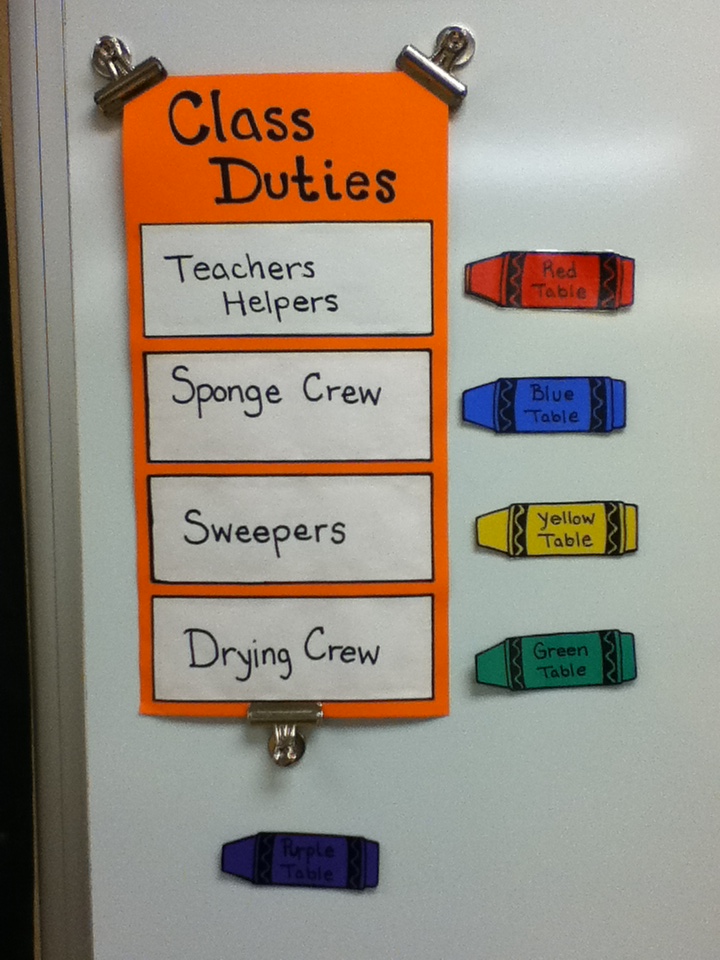 Class
Duties
Teachers
Helpers
Red
Table
Sponge Crew
Blue
Table
Sweepers
Yellow
Table
Drying Crew
Green
Table
Purple
Table